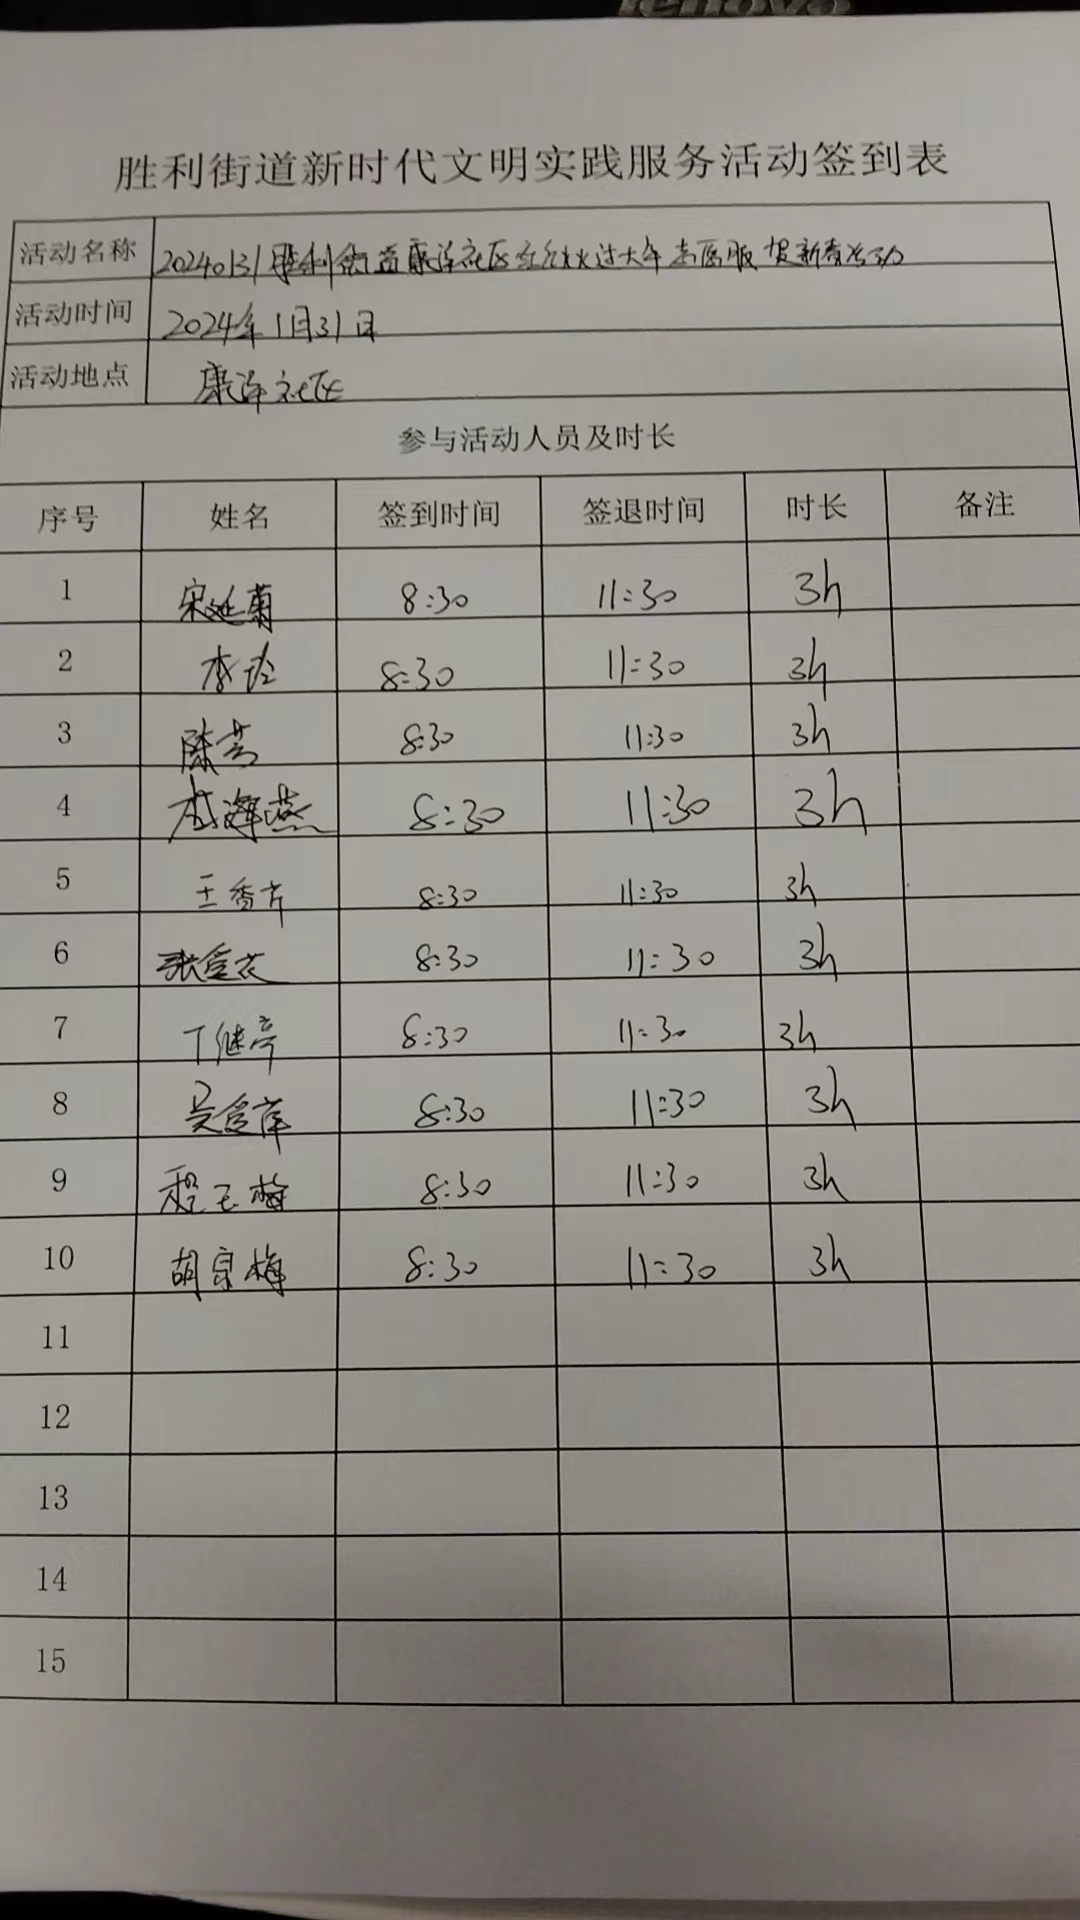 lenovo
胜利街道新时代文明实践服务活动签到表
活动名称 20240131胜利街道康泽社区红红火火过大年志愿服 贺新春活动
活动时间 2024年1月31日
活动地点 康泽社区
参与活动人员及时长
序号 姓名 签到时间 签退时间 时长 备注
1 宋延菊 8:30 11:30 3h
2 李玲 8:30 11:30 3h
3 陈芳 8:30 11:30 3h
4 海燕 8:30 11:30 3h
5 王香 8:30 11:30 3h
6 张爱 8:30 11:30 3h
7 丁继亭 8:30 11:30 3h
8 吴爱萍 8:30 11:30 3h
9 程玉梅 8:30 11:30 3h
10 胡宗梅 8:30 11:30 3h
11
12
13
14
15